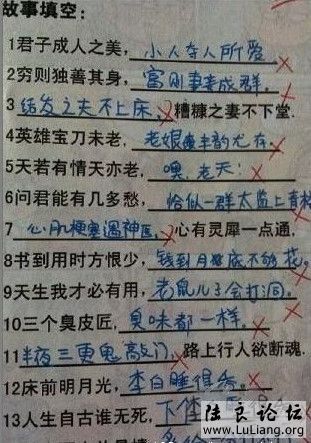 故事填空:
1君子成人之美,小人夺人所爱
2穷则独善其身,富则妻妾成群。
3结发之夫不上床,糟糠之妻不下堂.
4英雄宝刀未老,老娘风韵尤存。
5天若有情天亦老,噢,老天!
6问君能有几多愁,恰似一群太监上青楼
7心肌梗塞遇神医,心有灵犀一点通,
8书到用时方恨少,钱到月底不够花。
9天生我才必有用,老鼠儿子会打洞。
10三个臭皮匠,臭味都一样。
11半夜三更鬼敲门,路上行人欲断魂.
12床前明月光,李白睡得香。
13人生自古谁无死,
陆良论坛
www.LuLiang.org